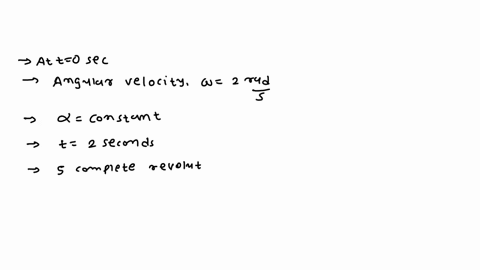 → At t=0 sec
→ Angular velocity, ω = 2 rad/s
→ α = constant
→ t = 2 seconds
→ 5 complete revolut